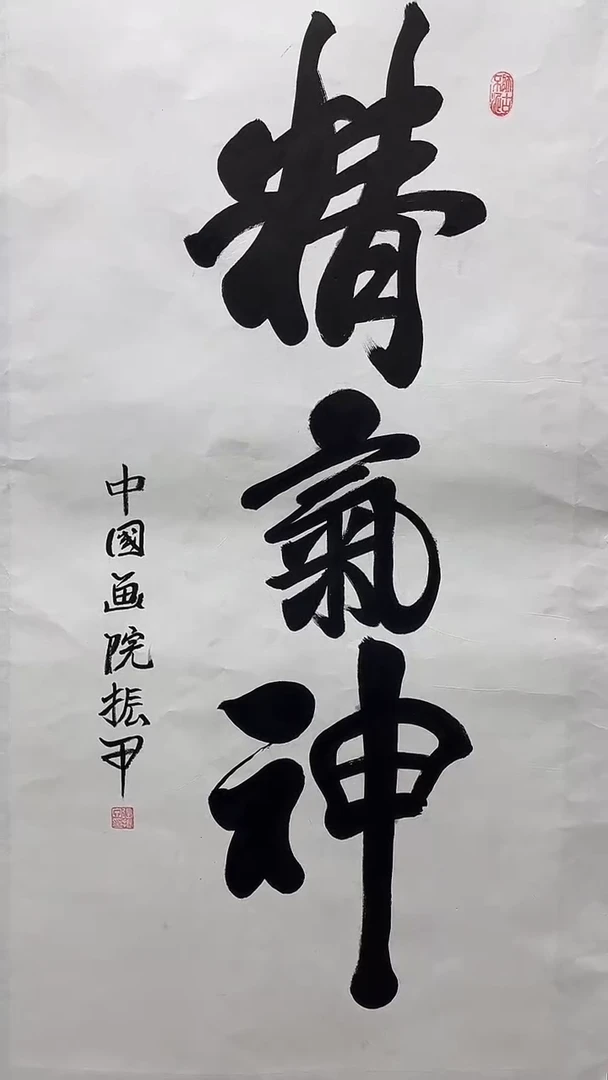 精氣神
中國画院振甲